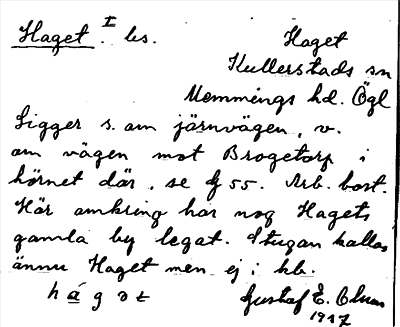 Haget. I bs.
Haget
Kullerstads sn
Memmings hd. Ögl
Ligger s. om järnvägen, v.
om vägen mot Brogetorp i
hörnet där, se 55. Arb. bost.
Här omkring har nog Hagets
gamla by legat. Stugan kallas
ännu Haget men ej i kb.
Gustaf E. Olsson
1917